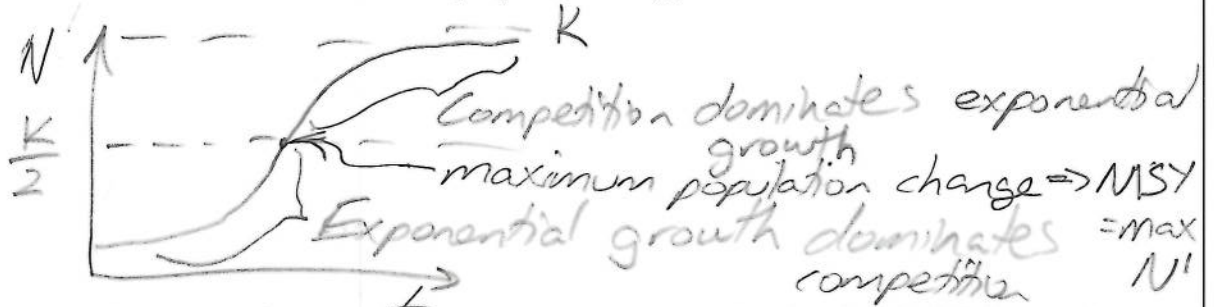 N
K
Competition dominates exponential
growth
K/2
maximum population change => MSY
= max
N'
Exponential growth dominates
competition
t